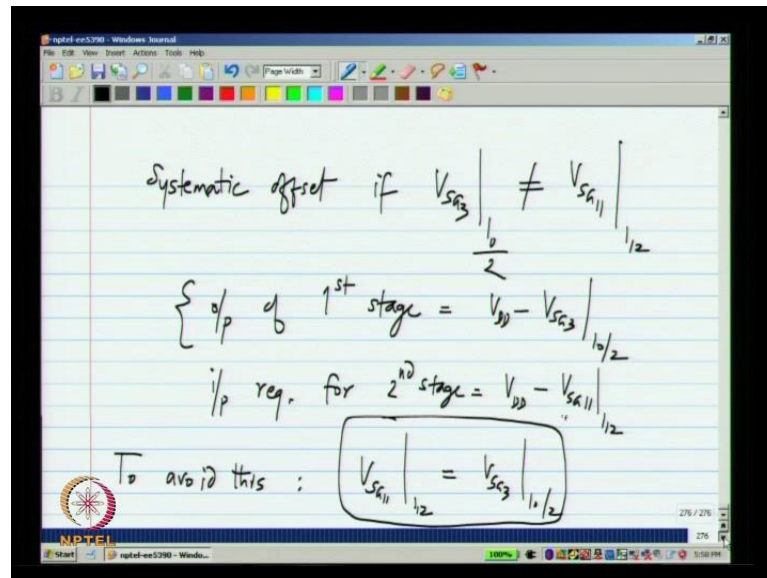 nptel-ee5390 - Windows Journal
File Edit View Insert Actions Tools Help
Page Width
B I
Systematic offset if V_SG3 |_I0/2 ≠ V_SG11 |_I12
{ o/p of 1st stage = V_DD - V_SG3 |_I0/2
i/p req. for 2nd stage = V_DD - V_SG11 |_I12
To avoid this : V_SG11 |_I12 = V_SG3 |_I0/2
NPTEL
276 / 276
276
Start nptel-ee5390 - Windo... 100% 5:58 PM